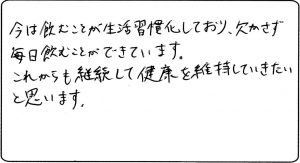 今は飲むことが生活習慣化しており、欠かさず
毎日飲むことができています。
これからも継続して健康を維持していきたい
と思います。